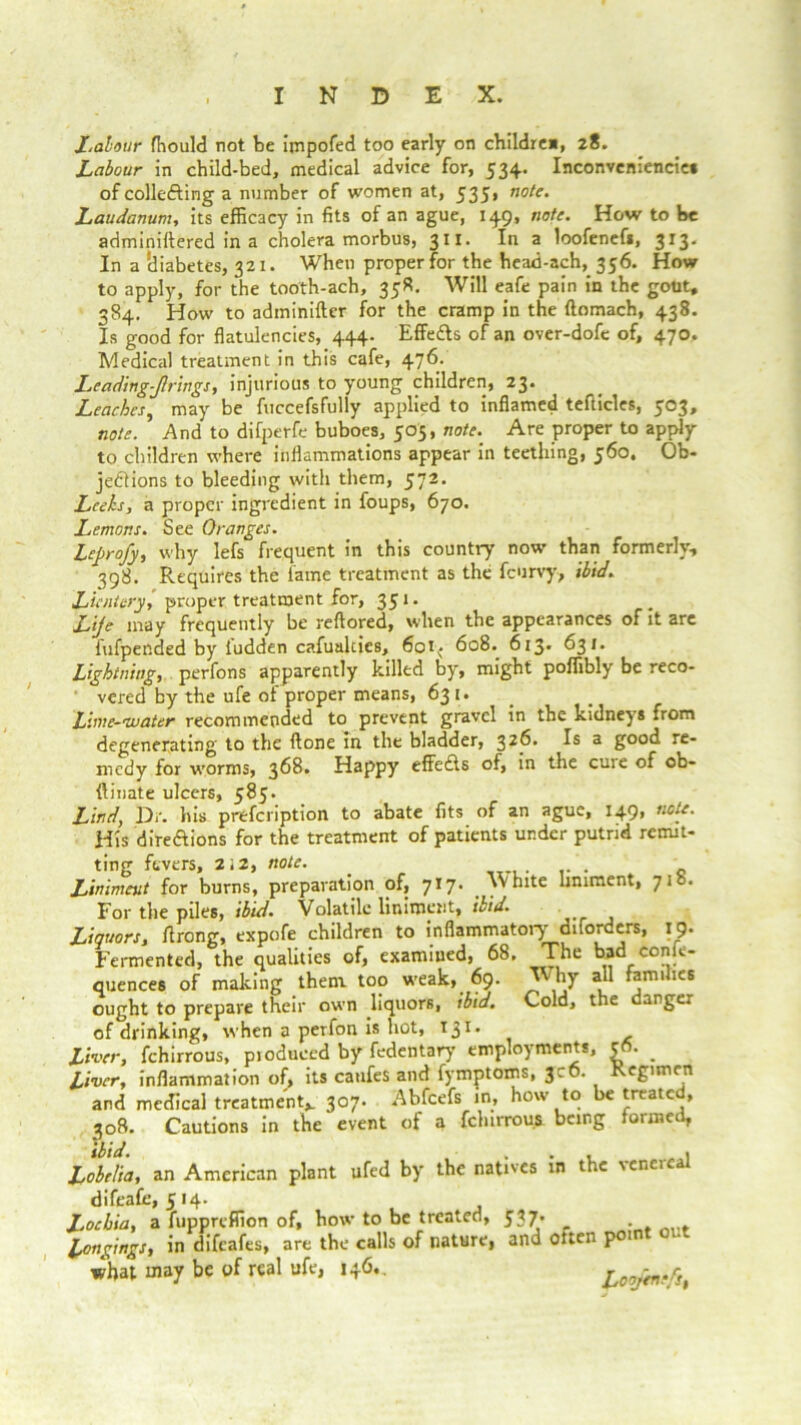 INDEX.
Labour ſhould not be impoſed too early on children, 28.
Labour in child-bed, medical advice for, 534. Inconveniencies
of collecting a number of women at, 535, note.
Laudanum, its efficacy in fits of an ague, 149, note. How to be
adminiſtered in a cholera morbus, 311. In a looſeneſs, 313.
In a diabetes, 321. When proper for the head-ach, 356. How
to apply, for the tooth-ach, 358. Will eaſe pain in the gout,
384. How to adminiſter for the cramp in the ſtomach, 438.
Is good for flatulencies, 444. Effects of an over-doſe of, 470.
Medical treatment in this caſe, 476.
Leading-ſtrings, injurious to young children, 23.
Leaches, may be ſucceſsfully applied to inflamed teſticles, 503,
note. And to diſperſe buboes, 505, note. Are proper to apply
to children where inflammations appear in teething, 560. Ob-
jections to bleeding with them, 572.
Leeks, a proper ingredient in ſoups, 670.
Lemons. See Oranges.
Leproſy, why leſs frequent in this country now than formerly,
398. Requires the ſame treatment as the ſcurvy, ibid.
Lientery, proper treatment for, 351.
Life may frequently be reſtored, when the appearances of it are
ſuſpended by ſudden caſualties, 601. 608. 613. 631.
Lightning, perſons apparently killed by, might poſſibly be reco-
vered by the uſe of proper means, 631.
Lime-water recommended to prevent gravel in the kidneys from
degenerating to the ſtone in the bladder, 326. Is a good re-
medy for worms, 368. Happy effects of, in the cure of ob-
ſtinate ulcers, 585.
Lind, Dr. his preſcription to abate fits of an ague, 149, note.
His directions for the treatment of patients under putrid remit-
ting fevers, 212, note.
Liniment for burns, preparation of, 717. White liniment, 718.
For the piles, ibid. Volatile liniment, ibid.
Liquors, ſtrong, expoſe children to inflammatory diſorders, 19.
Fermented, the qualities of, examined, 68. The bad conſe-
quences of making them too weak, 69. Why all families
ought to prepare their own liquors, ibid. Cold, the danger
of drinking, when a perſon is hot, 131.
Liver, ſchirrous, produced by ſedentary employments, 56.
Liver, inflammation of, its cauſes and ſymptoms, 306. Regimen
and medical treatment, 307. Abſceſs in, how to be treated,
308. Cautions in the event of a ſchirrous being formed,
ibid.
Lobelia, an American plant uſed by the natives in the venereal
diſeaſe, 514.
Lochia, a ſuppreſſion of, how to be treated, 537.
Longings, in diſeaſes, are the calls of nature, and often point out
what may be of real uſe, 146.
Looſeneſs,